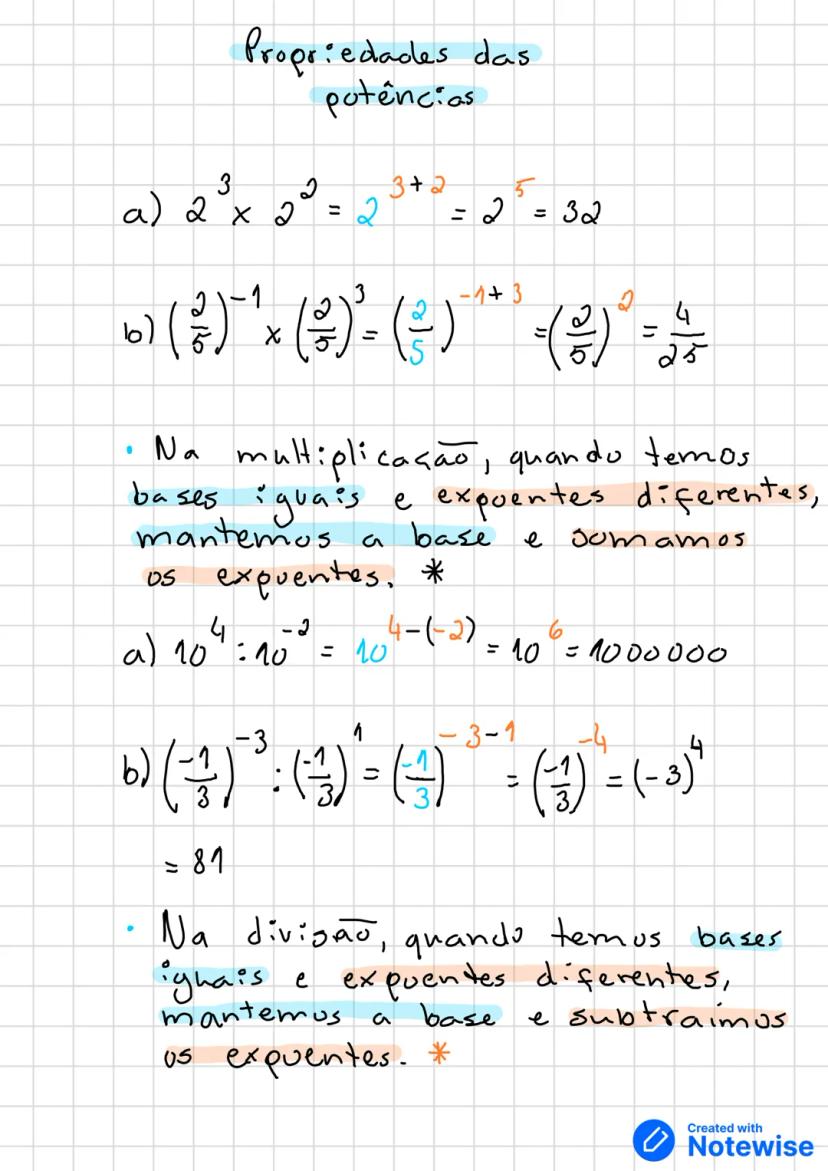 Propriedades das
potências
a) 2³ × 2² = 2³⁺² = 2⁵ = 32
b) (2/5)⁻¹ × (2/5)³ = (2/5)⁻¹⁺³ = (2/5)² = 4/25
• Na multiplicação, quando temos
bases iguais e expoentes diferentes,
mantemos a base e somamos
os expoentes. *
a) 10⁴ : 10⁻² = 10⁴⁻⁽⁻²⁾ = 10⁶ = 1000000
b) (-1/3)⁻³ : (-1/3)¹ = (-1/3)⁻³⁻¹ = (-1/3)⁻⁴ = (-3)⁴
= 81
• Na divisão, quando temos bases
iguais e expoentes diferentes,
mantemos a base e subtraímos
os expoentes. *
Created with
Notewise